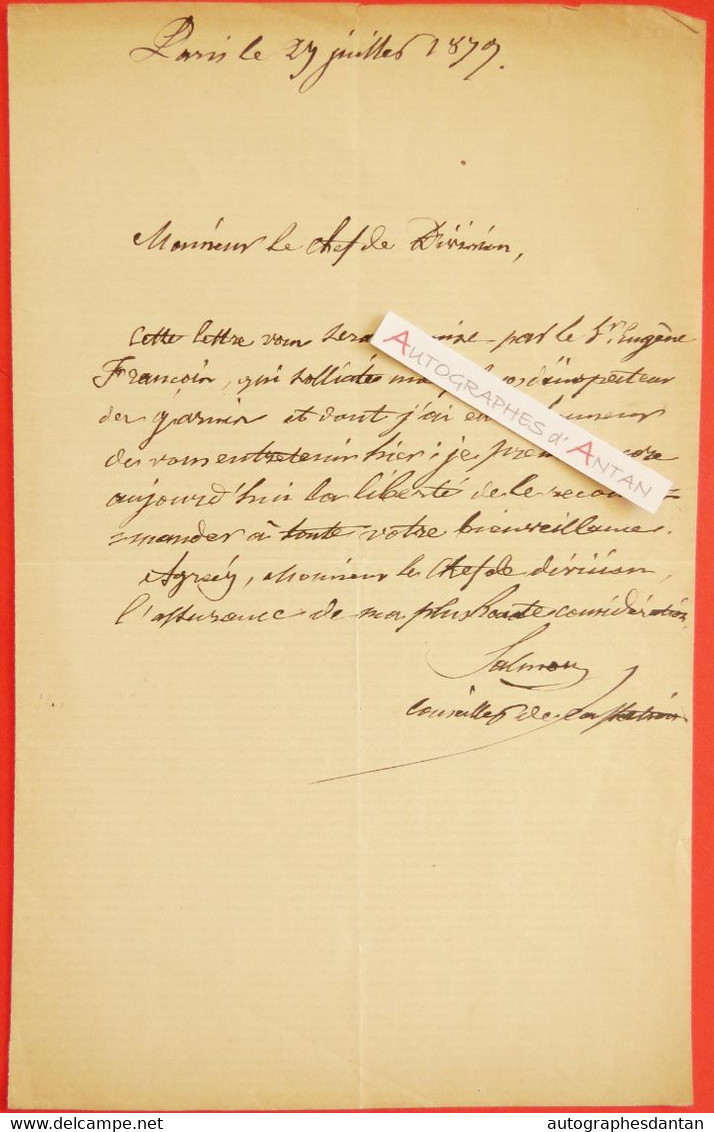 Paris le 27 juillet 1879.
Monsieur le chef de Division,
Cette lettre vous sera par le Sr. Eugène
François, qui sollicite d'inspecteur
des garnis et dont j'ai eu
de vous entretenir hier : je
aujourd'hui la liberté de le recom=
mander à toute votre bienveillance.
Agréez, Monsieur le Chef de division,
l'assurance de ma plus haute considération,
Salmon
Conseiller de Cassation
AUTOGRAPHES d'ANTAN
www.delcampe.net
autographesdantan